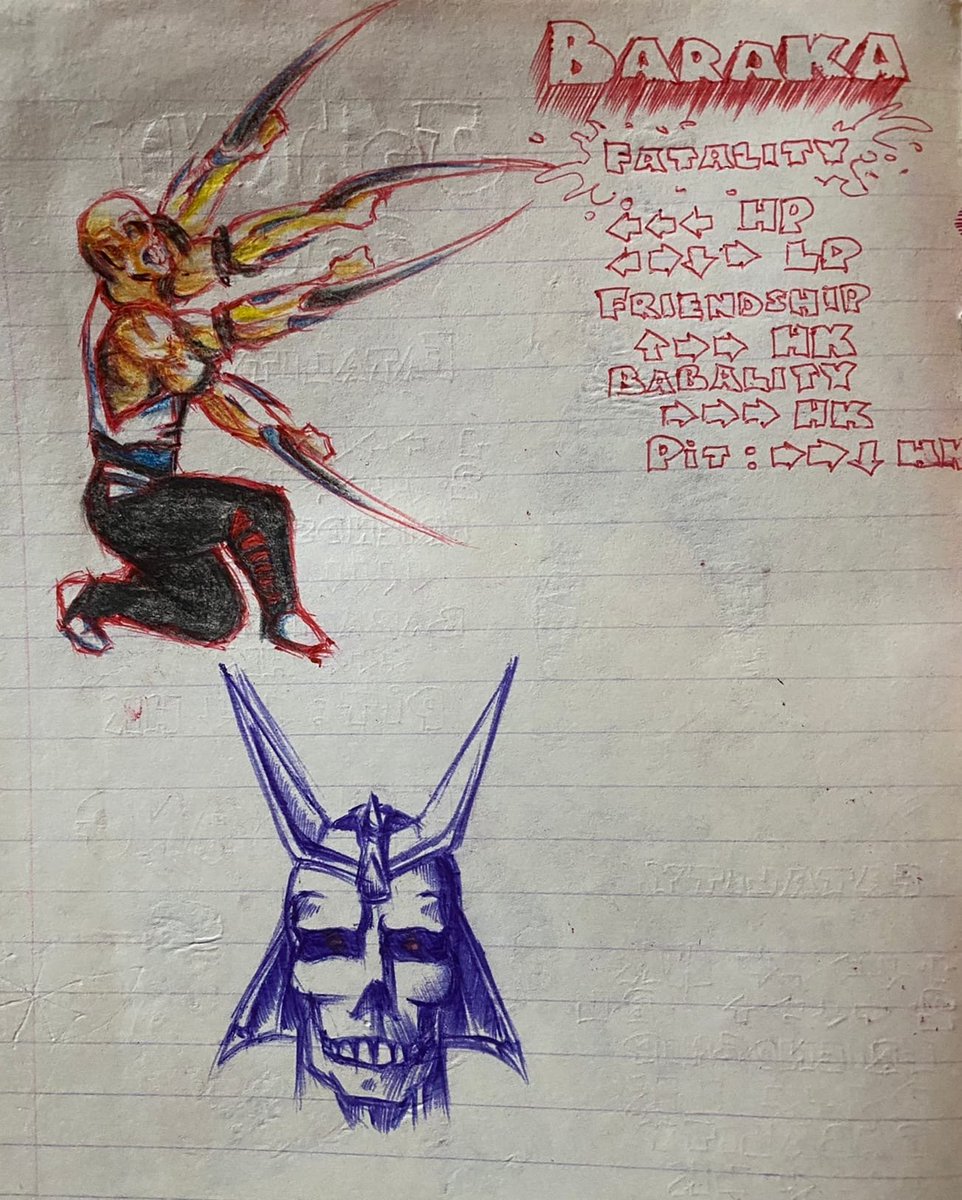 BARAKA
FATALITY
←←← HP
←→↓→ LP
FRIENDSHIP
↑→→ HK
BABALITY
→→→ HK
PiT: →→↓ HK